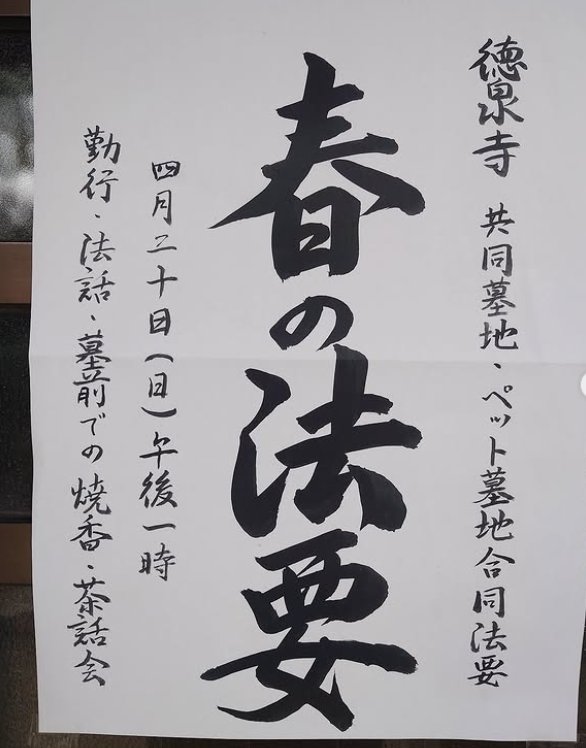 徳泉寺 共同墓地・ペット墓地合同法要
春の法要
四月二十日(日)午後一時
勤行・法話・墓前での焼香・茶話会